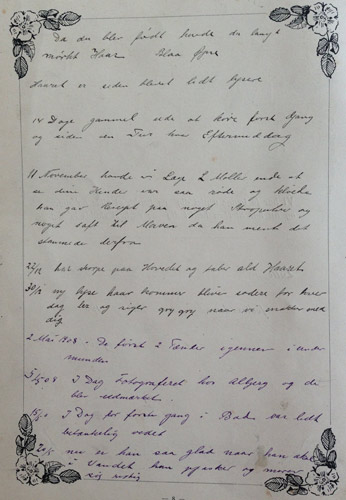 Da du blev født havde du langt
mörkt Haar Blaa Øjne
Haaret er siden blevet lidt lysere
14 Dage gammel ude at köre förste Gang
og siden en Tur hver Eftermiddag
11 November havde vi Læge L Möller ude at
se dine Hænder var saa röde og
han gav Recept paa noget og
noget Saft til Maven da han mente det
stammede derfra
22/12 har skorpe paa Hovedet og taber alt Haaret
30/12 ny lyse Haar kommer bliver sødere for hver
dag ler og siger gry gry naar vi snakker med
dig
2 Mai 1908 - De første 2 Tænder igennem i under
munden
5/5 08 I Dag Fotograferet hos Alberg og du
blev udmærket
15/5 I Dag for første gang i Bad var lidt
betænkelig ved det
20/5 nu er han saa glad naar han
i Vandet han pjasker og morer
sig rigtig
- 8 -